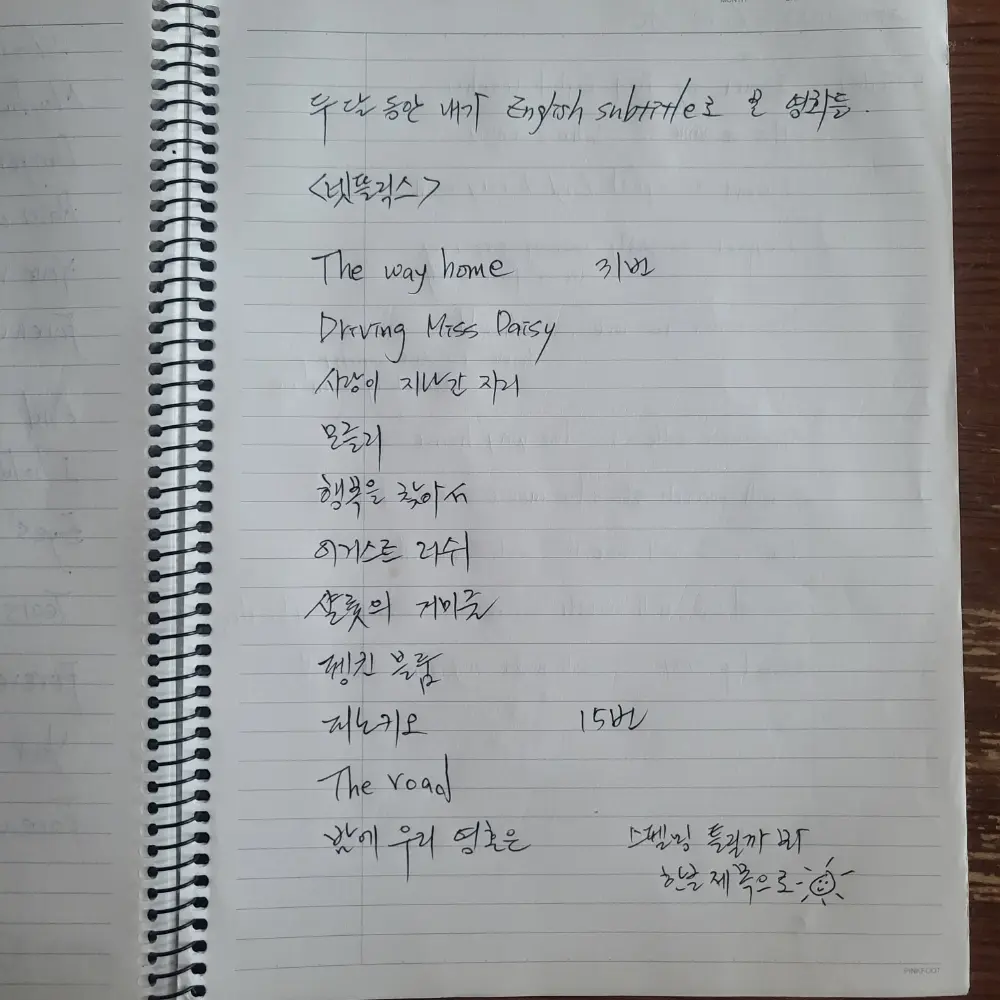 두 달 동안 내가 English subtitle로 본 영화들.
<넷플릭스>
The way home 31번
Driving Miss Daisy
사랑이 지나간 자리
모글리
행복을 찾아서
어거스트 러쉬
샬롯의 거미줄
펭귄 블룸
피노키오 15번
The road
밤에 우리 영혼은
스펠링 틀릴까 봐
한글 제목으로~
PINKFOOT